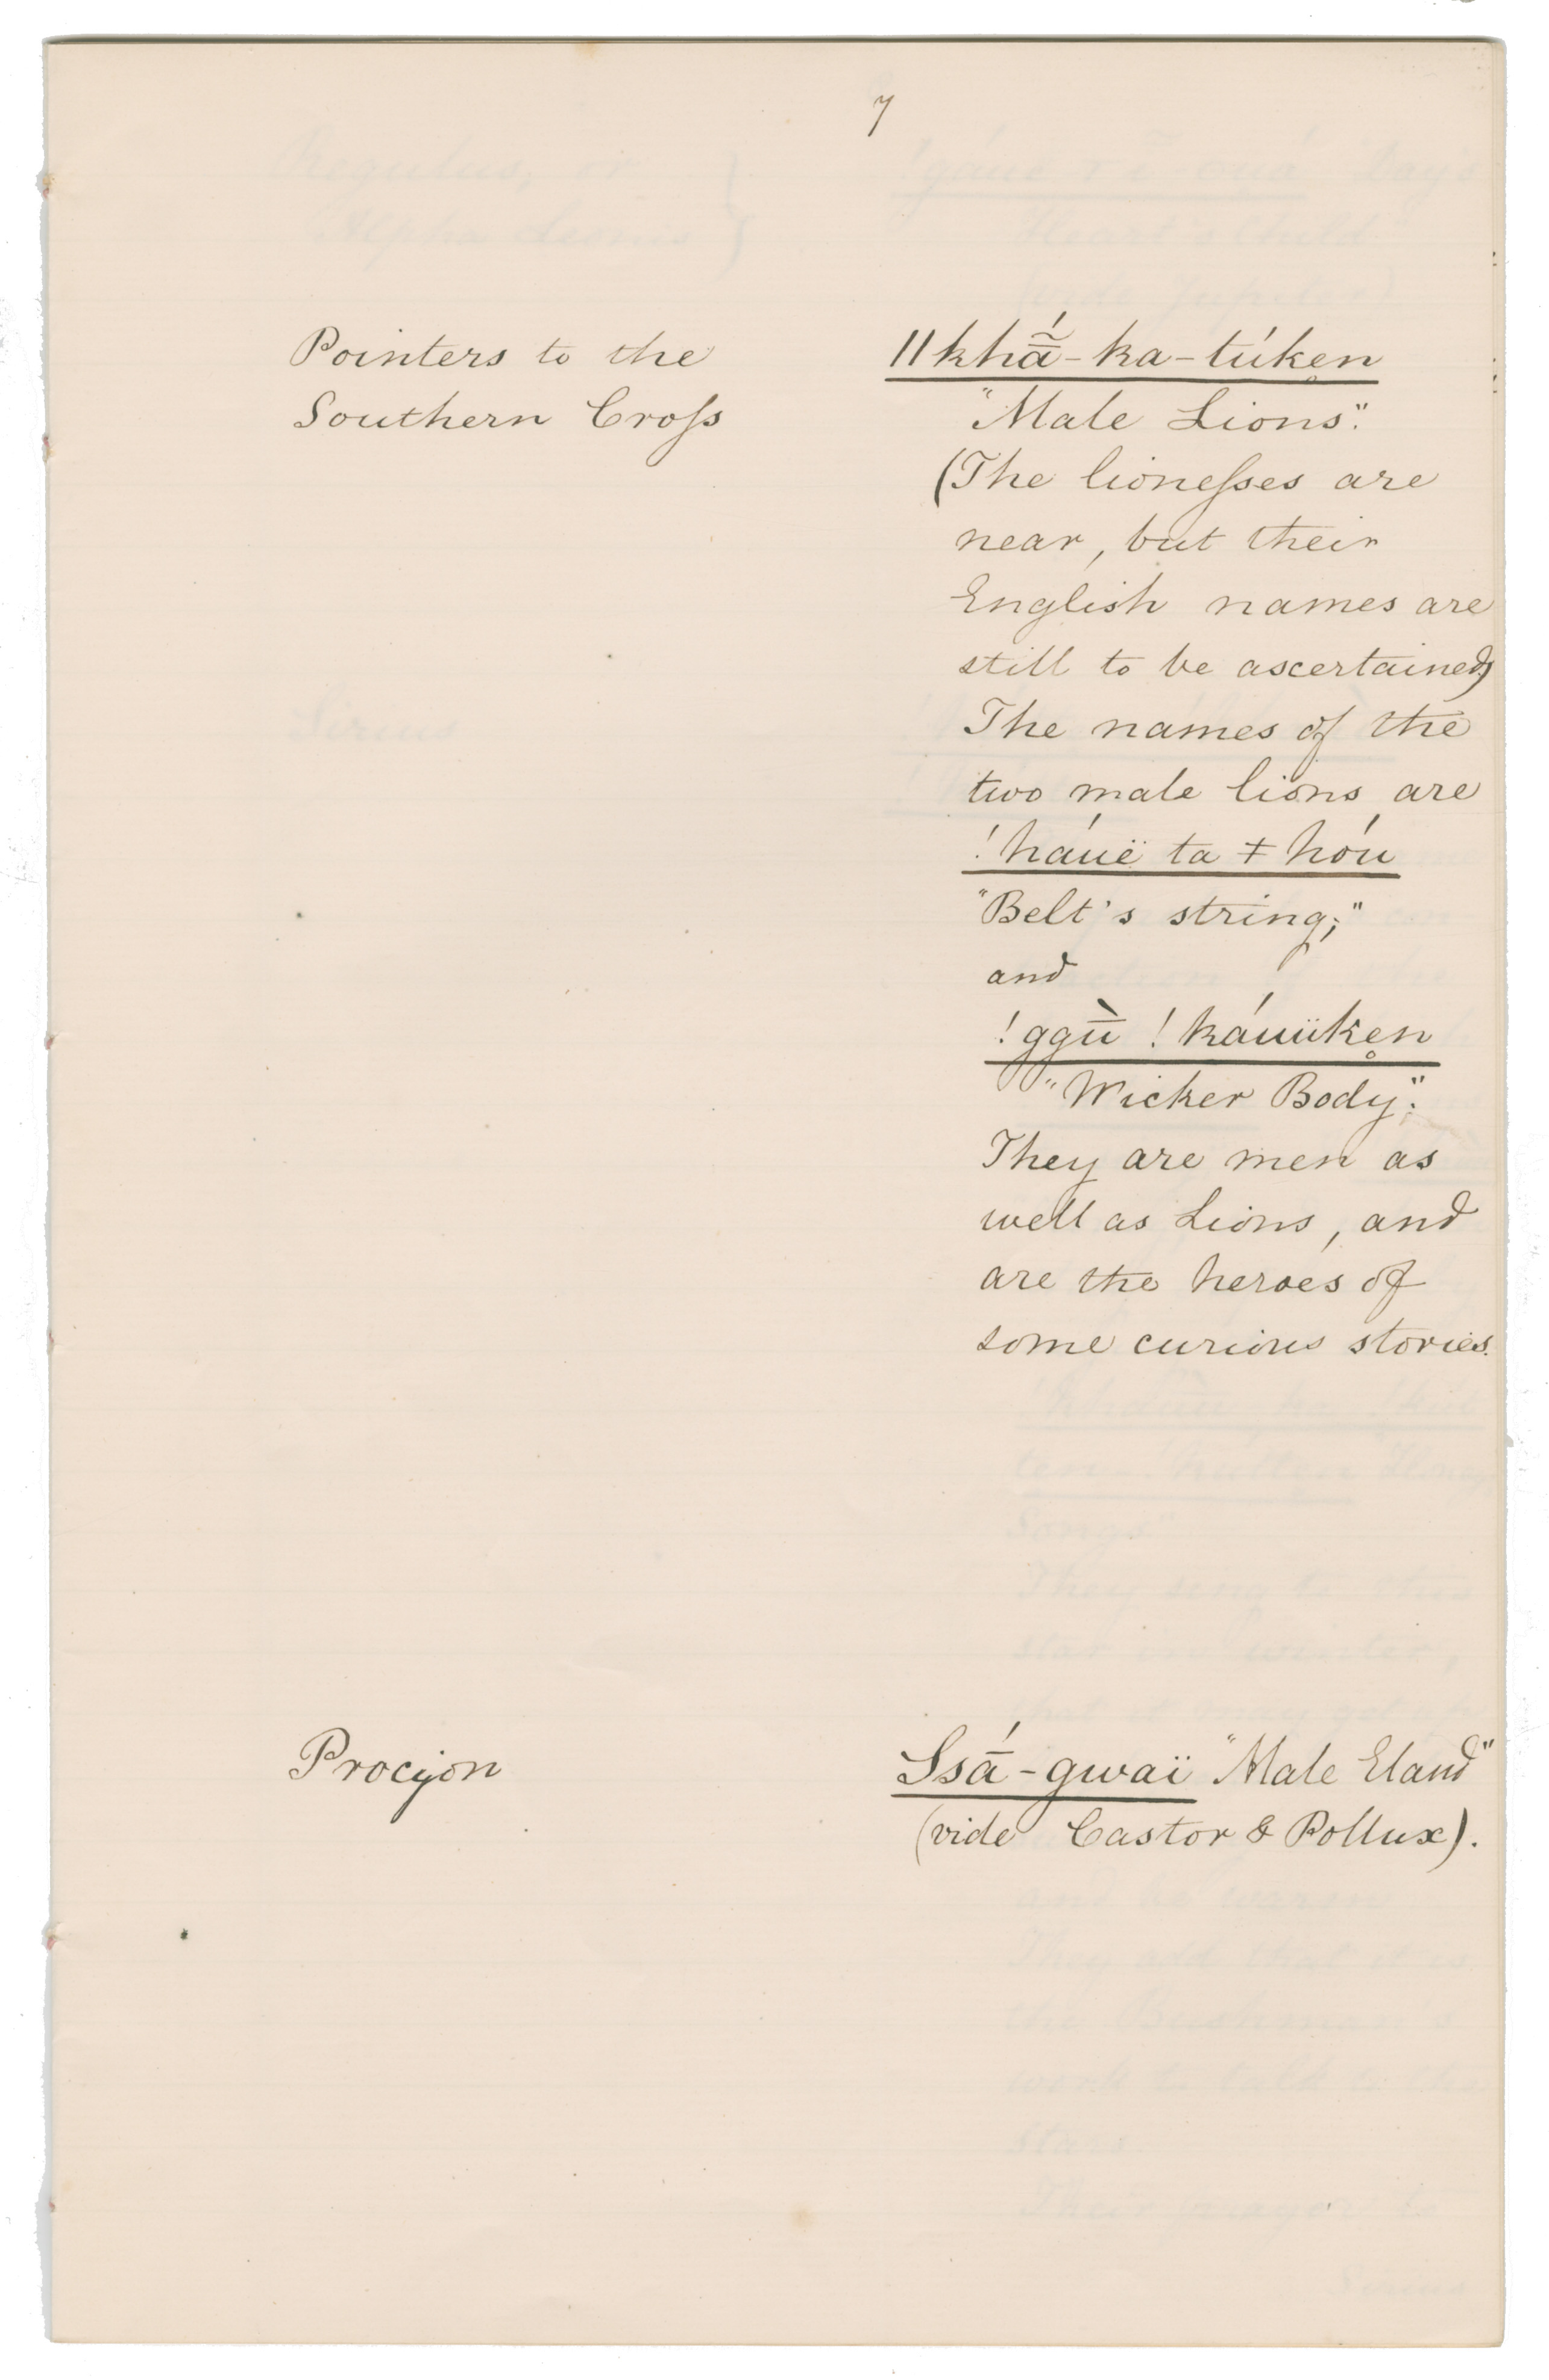 7
Pointers to the
Southern Croſs
||khã́-ka-túken̥
"Male Lions".
(The lioneſses are
near, but their
English names are
still to be ascertained)
The names of the
two male lions are
!háuë ta ǂhóu
"Belt's string;"
and
!ggǖ̀ !káuïken̥
"Wicker Body".
They are men as
well as Lions, and
are the heroes of
some curious stories.
Procyon
Ssā́-gwaï "Male Eland"
(vide Castor & Pollux).